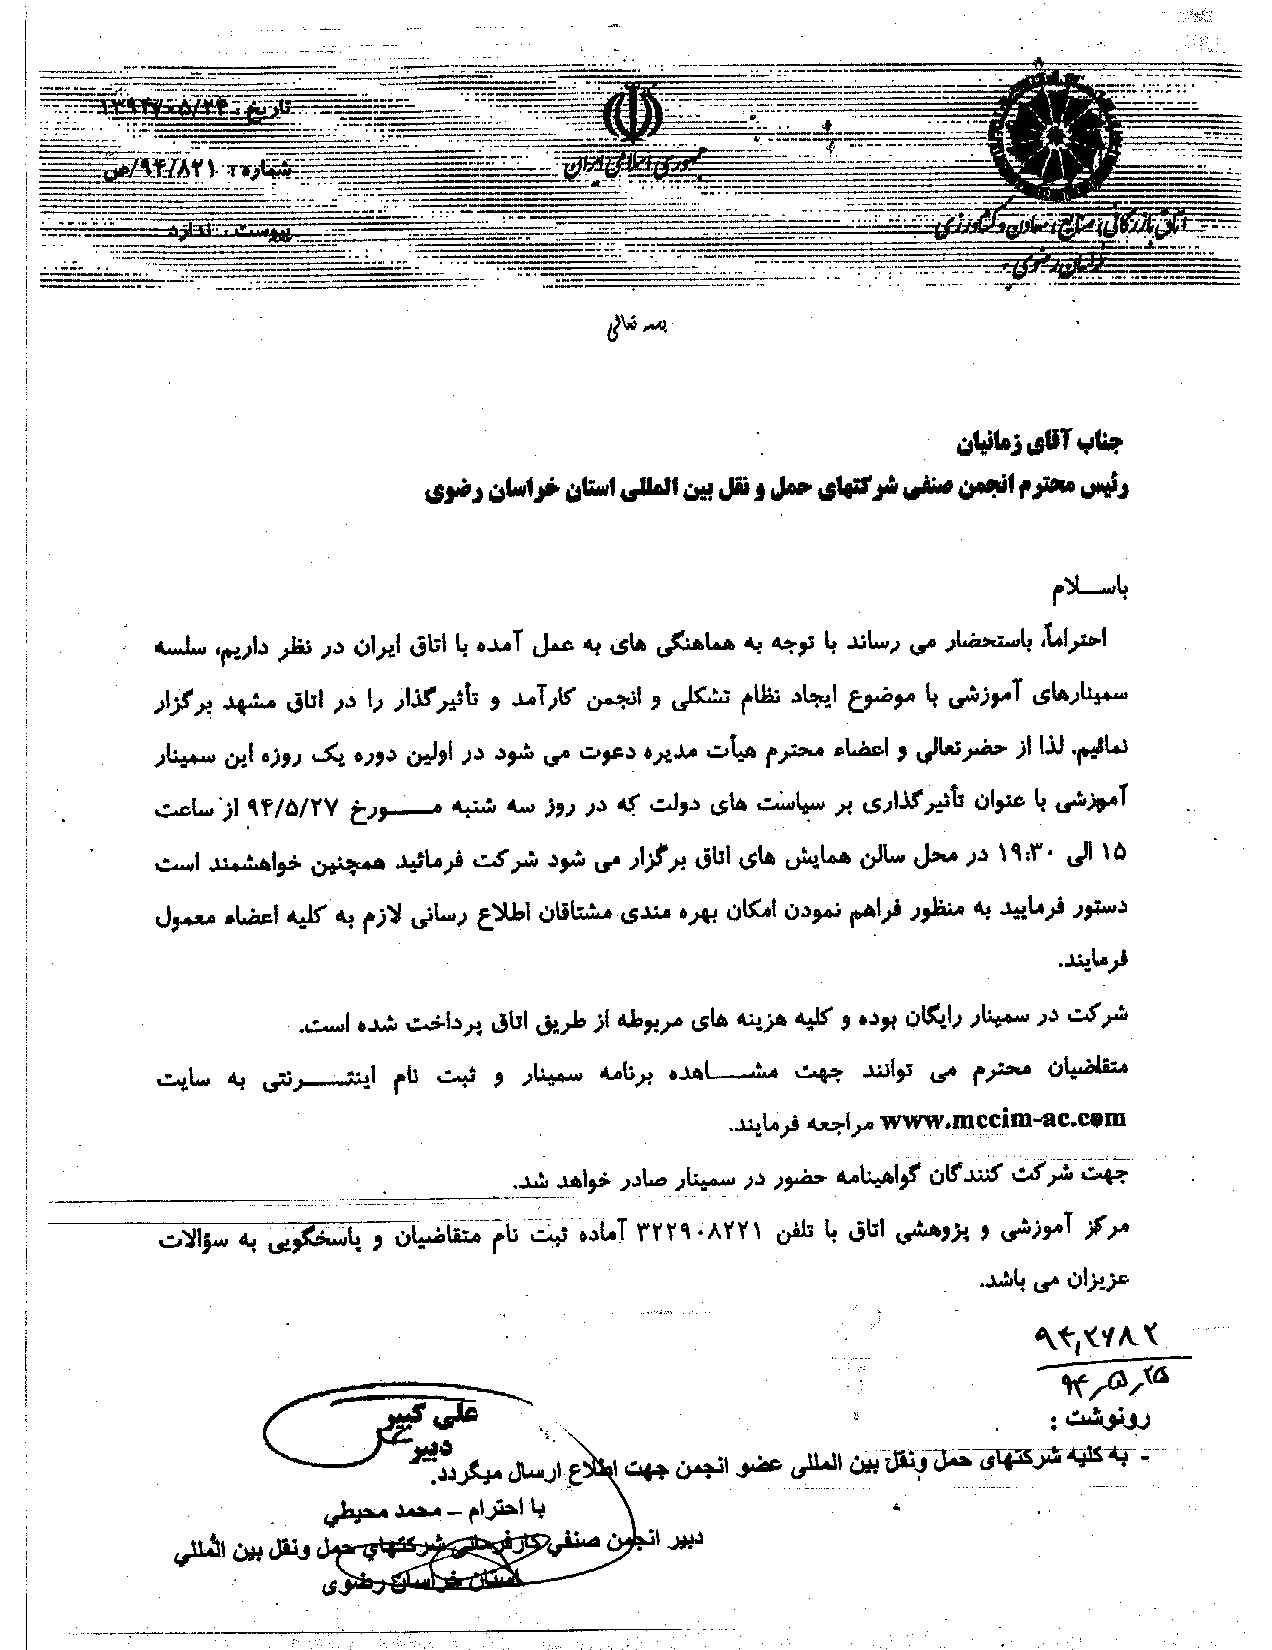 تاریخ : ۱۳۹۴/۰۵/۲۴
شماره: ۹۴/۸۲۱/ص
پیوست : ندارد
جمهوری اسلامی ایران
اتاق بازرگانی، صنایع، معادن و کشاورزی
خراسان رضوی
بسمه تعالی
جناب آقای زمانیان
رئیس محترم انجمن صنفی شرکتهای حمل و نقل بین المللی استان خراسان رضوی
باســلام
احتراماً، باستحضار می رساند با توجه به هماهنگی های به عمل آمده با اتاق ایران در نظر داریم، سلسه
سمینارهای آموزشی با موضوع ایجاد نظام تشکلی و انجمن کارآمد و تأثیرگذار را در اتاق مشهد برگزار
نمائیم. لذا از حضرتعالی و اعضاء محترم هیأت مدیره دعوت می شود در اولین دوره یک روزه این سمینار
آموزشی با عنوان تأثیرگذاری بر سیاست های دولت که در روز سه شنبه مـــورخ ۹۴/۵/۲۷ از ساعت
۱۵ الی ۱۹:۳۰ در محل سالن همایش های اتاق برگزار می شود شرکت فرمائید. همچنین خواهشمند است
دستور فرمایید به منظور فراهم نمودن امکان بهره مندی مشتاقان اطلاع رسانی لازم به کلیه اعضاء معمول
فرمایند.
شرکت در سمینار رایگان بوده و کلیه هزینه های مربوطه از طریق اتاق پرداخت شده است.
متقاضیان محترم می توانند جهت مشـــاهده برنامه سمینار و ثبت نام اینتـــرنتی به سایت
www.mccim-ac.com مراجعه فرمایند.
جهت شرکت کنندگان گواهینامه حضور در سمینار صادر خواهد شد.
مرکز آموزشی و پژوهشی اتاق با تلفن ۳۲۲۹۰۸۲۲۱ آماده ثبت نام متقاضیان و پاسخگویی به سؤالات
عزیزان می باشد.
۹۴,۲۷۸۲
۹۴,۵,۲۵
علی کبیر
دبیر
رونوشت :
- به کلیه شرکتهای حمل ونقل بین المللی عضو انجمن جهت اطلاع ارسال میگردد.
با احترام – محمد محیطی
دبیر انجمن صنفی کارفرمائی شرکتهای حمل ونقل بین المللی
استان خراسان رضوی